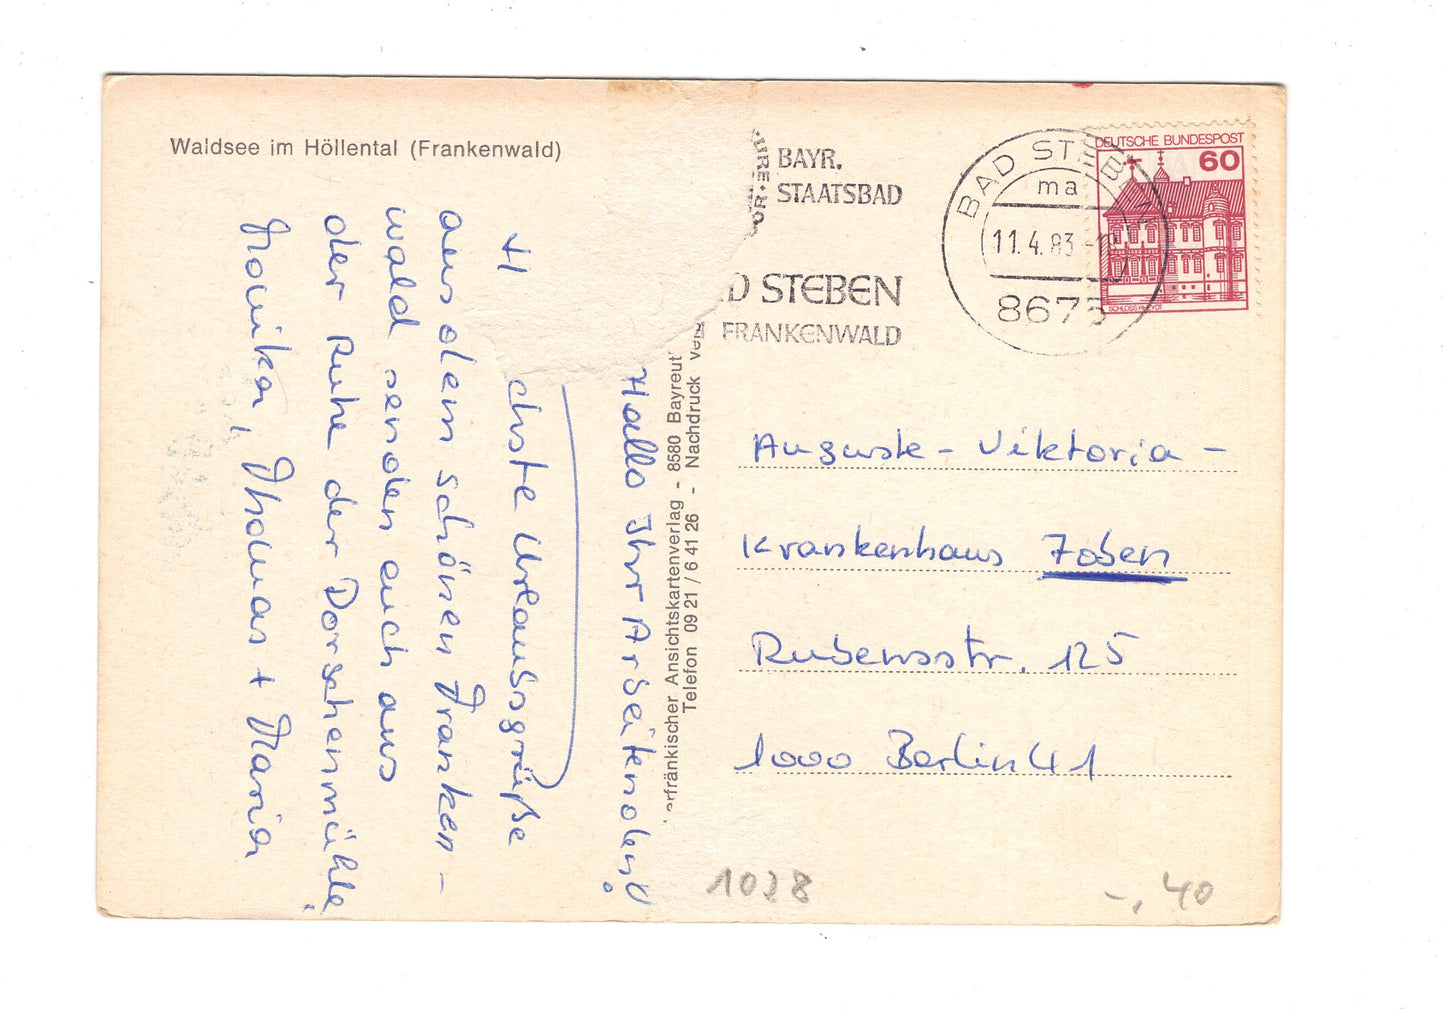 Waldsee im Höllental (Frankenwald)
Hallo Ihr Arbeitenden!
H chste Urlaubsgrüße
aus dem schönen Franken-
wald senden euch aus
der Ruhe der Dorschenmühle
Monika, Thomas + Maria
erfränkischer Ansichtskartenverlag - 8580 Bayreut
Telefon 09 21 / 6 41 26 - Nachdruck ver
URE
BAYR.
STAATSBAD
D STEBEN
FRANKENWALD
BAD STEBEN
ma
11.4.83
8675
DEUTSCHE BUNDESPOST
60
SCHLOSS RHEYDT
Auguste-Viktoria-
Krankenhaus
Rubensstr. 125
1000 Berlin 41
1028
-,40